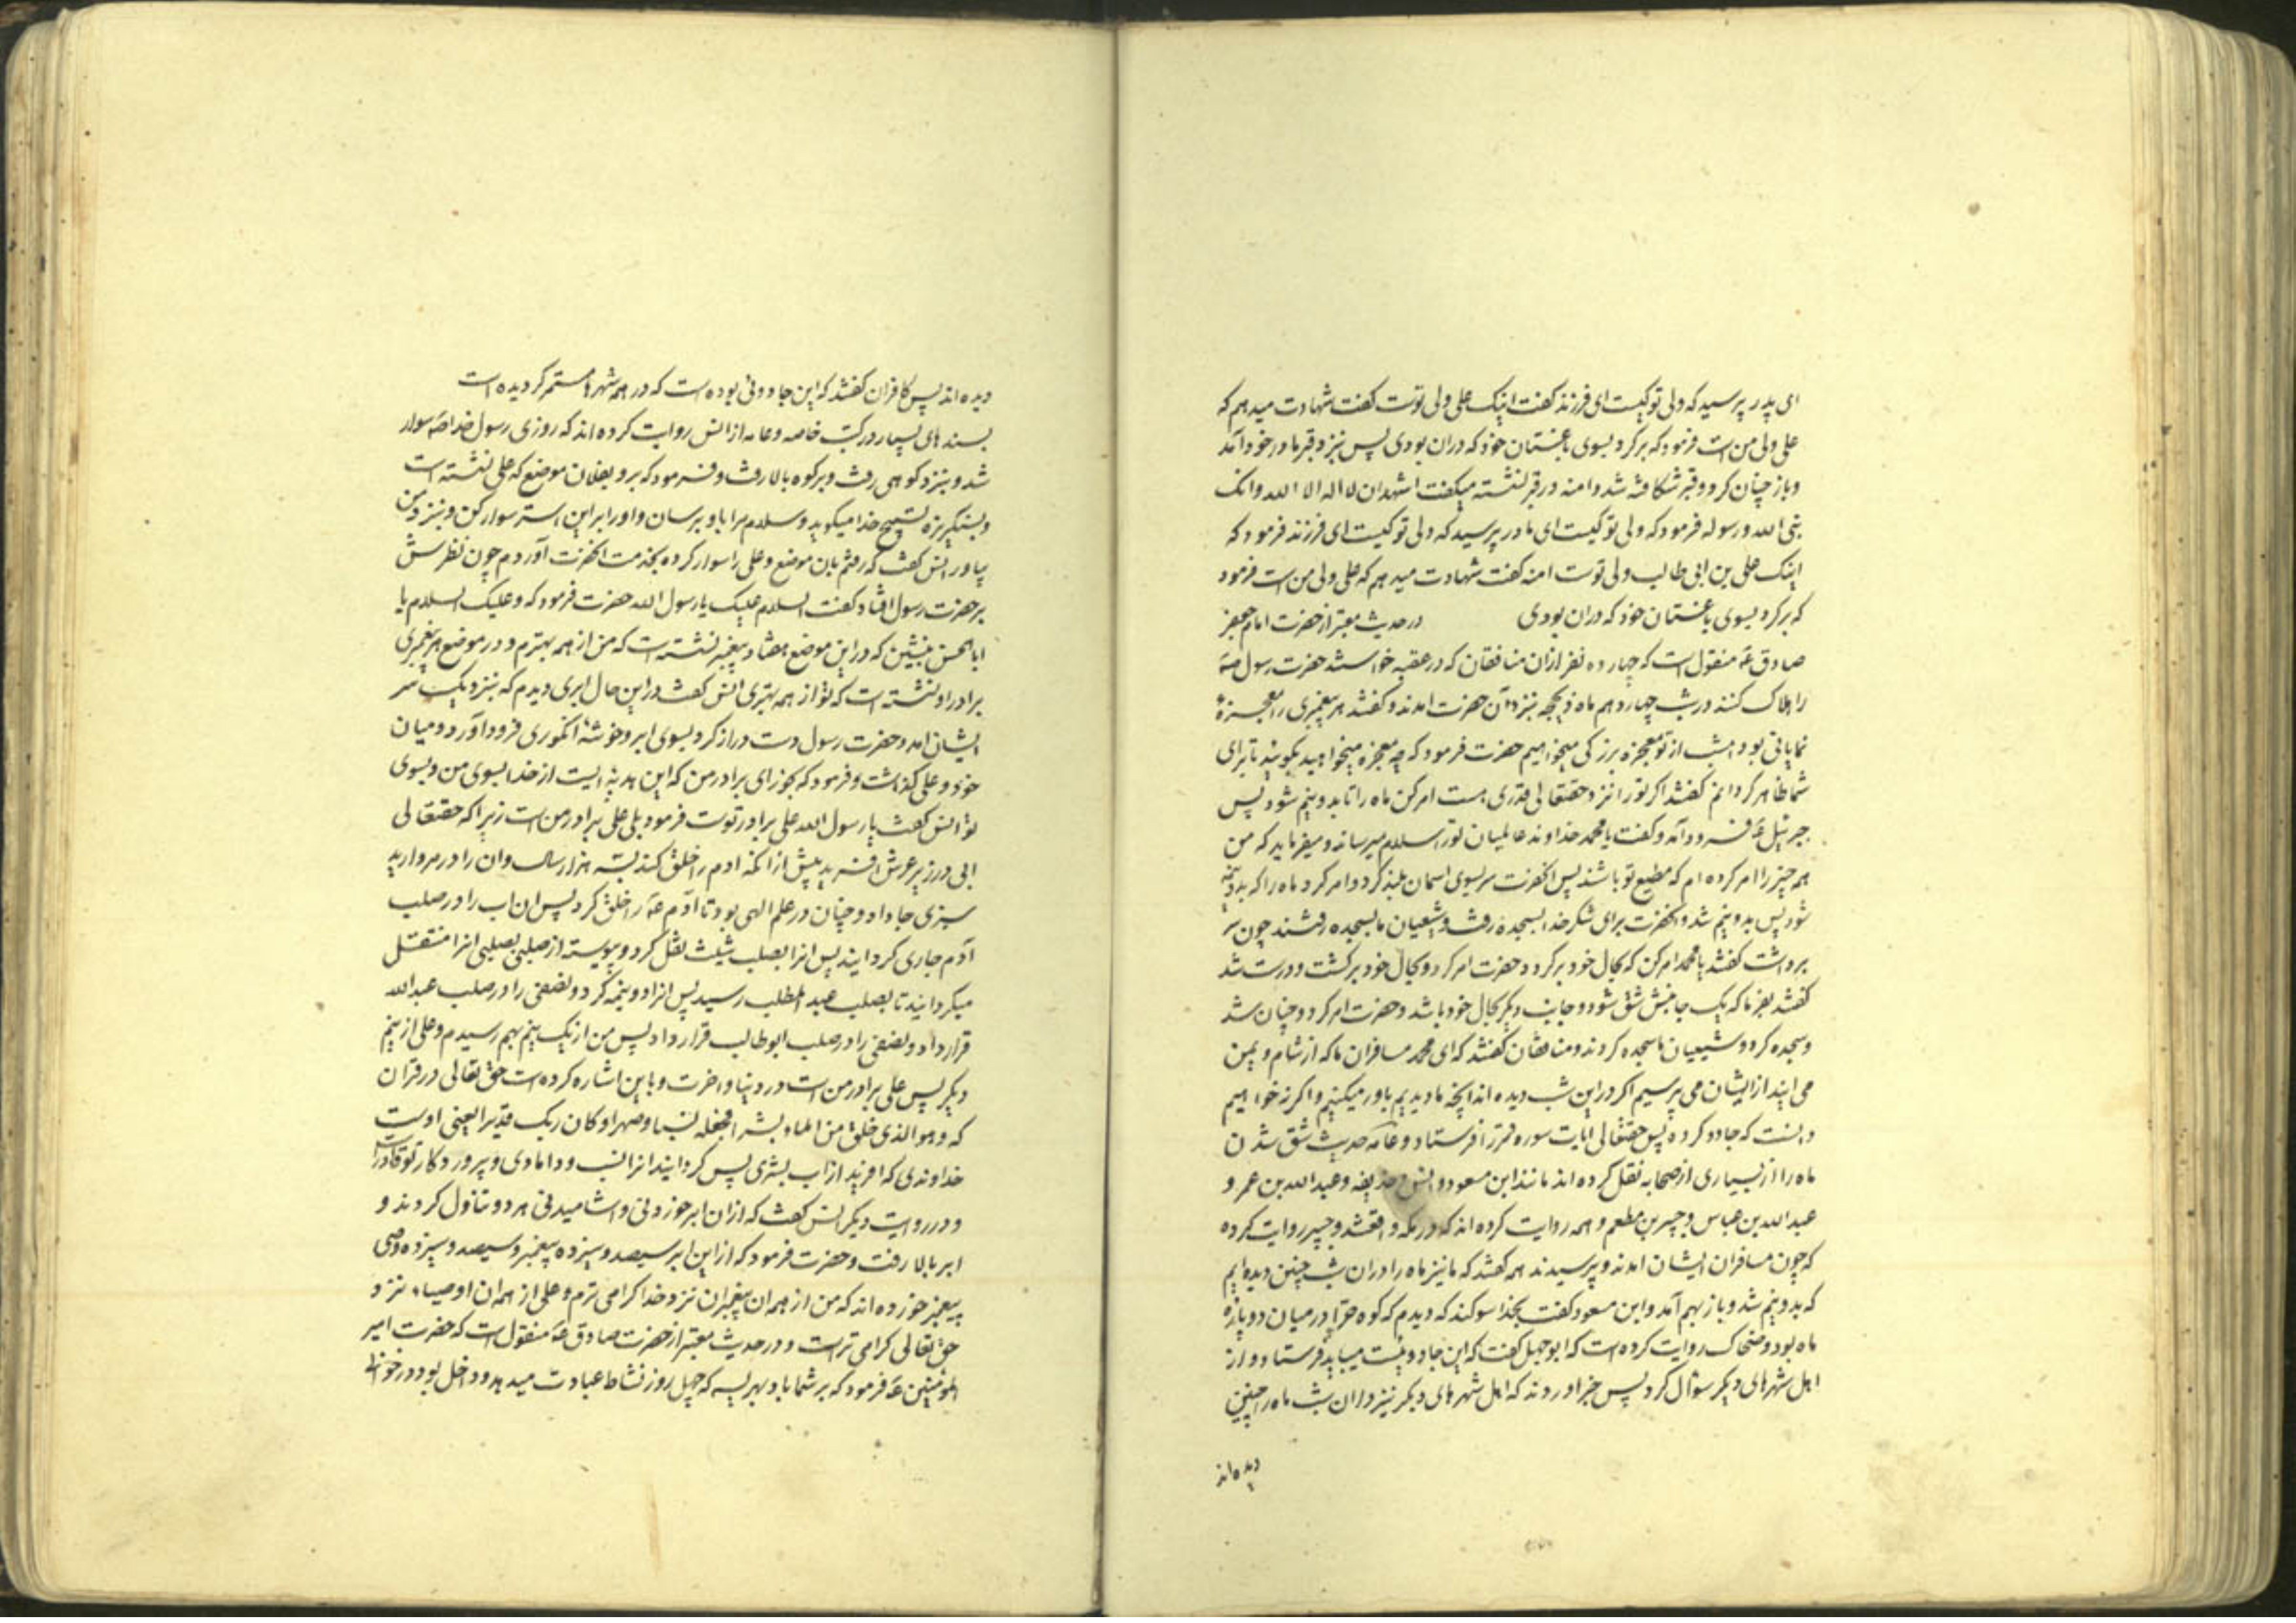 ای پدر پرسید که ولی تو کیست ای فرزند گفت اینک علی ولی توست گفت شهادت میدهم که
علی ولی من است فرمود که برگرد بسوی باغستان خود که دران بودی پس نیزد قبر مادر خود آمد
و باز چنان کرد و قبر شکافته شد و امنه در قبر نشسته میگفت اشهد ان لا اله الا الله و انک
نبی الله و رسوله فرمود که ولی تو کیست ای مادر پرسید که ولی تو کیست ای فرزند فرمود که
اینک علی بن ابی طالب ولی توست امنه گفت شهادت میدهم که علی ولی من است فرمود
که برگرد بسوی باغستان خود که دران بودی در حدیث معتبر از حضرت امام جعفر
صادق عَ منقول است که چهارده نفر ازان منافقان که در عقبه خواستند حضرت رسول صَ
را هلاک کنند در شب چهاردهم ماه ذیحجه بنزد آن حضرت امدند و گفتند هر پیغمبری را معجزهٔ
نمایانی بود امشب از تو معجزه بزرگی میخواهیم حضرت فرمود که چه معجزه میخواهید بگویید تا برای
شما ظاهر گردانم گفتند اگر تو را نزد حقتعالی قدری هست امر کن ماه را تا بدو نیم شود پس
جبرئیل عَ فرود آمد و گفت یا محمد خداوند عالمیان تو را سلام میرساند و میفرماید که من
همه چیز را امر کرده ام که مطیع تو باشند پس انحضرت سر بسوی اسمان بلند کرد و امر کرد ماه را که بدو نیم
شود پس بدو نیم شد و انحضرت برای شکر خدا بسجده رفت و شیعیان ما بسجده رفتند چون سر
برداشت گفتند یا محمد امر کن که بحال خود برگردد حضرت امر کرد و بحال خود برگشت و درست شد
گفتند بفرما که یک جانبش شق شود و جانب دیگر بحال خود باشد و حضرت امر کرد و چنان شد
و سجده کرد و شیعیان ما سجده کردند و منافقان گفتند که ای محمد مسافران ما که از شام و یمن
می ایند از ایشان می پرسیم اگر در این شب دیده اند آنچه ما دیدیم باور میکنیم و اگر نه خواهیم
دانست که جادو کرده پس حقتعالی ایات سوره قمر را فرستاد و عامّه حدیث شق شدن
ماه را از بسیاری از صحابه نقل کرده اند مانند ابن مسعود و انس و حذیفه و عبد الله بن عمر و
عبد الله بن عباس و جبیر بن مطعم و همه روایت کرده اند که در مکه واقع شد و جبیر روایت کرده
که چون مسافران ایشان امدند و پرسیدند همه گفتند که ما نیز ماه را دران شب چنین دیده ایم
که بدو نیم شد و باز بهم آمد و ابن مسعود گفت بخدا سوگند که دیدم که کوه حرا در میان دو پاره
ماه بود و ضحاک روایت کرده است که ابو جهل گفت که این جادوئیست میباید فرستاد و از
اهل شهرهای دیگر سؤال کرد پس خبر اوردند که اهل شهرهای دیگر نیز دران شب ماه را چنین
دیده اند
دیده اند پس کافران گفتند که این جادوئی بوده است که در همه شهرها مستمر گردیده است
بسندهای بسیار در کتب خاصه و عامه از انس روایت کرده اند که روزی رسول خدا صَ سوار
شد و بنزد کوهی رفت و بر کوه بالا رفت و فرمود که برو بفلان موضع که علی نشسته است
و بسنگریزه تسبیح خدا میگوید و سلام مرا باو برسان و او را بر این استر سوار کن و بنزد من
بیاور انس گفت که رفتم بان موضع و علی را سوار کرده بخدمت انحضرت آوردم چون نظرش
بر حضرت رسول افتاد گفت السلام علیک یا رسول الله حضرت فرمود که و علیک السلام یا
ابا الحسن بنشین که در این موضع هفتاد پیغمبر نشسته است که من از همه بهترم و در موضع هر پیغمبری
برادر او نشسته است که تو از همه بهتری انس گفت در این حال ابری دیدم که بنزدیک سر
ایشان امد و حضرت رسول دست دراز کرد بسوی ابر و خوشهٔ انگوری فرود آورد و میان
خود و علی گذاشت و فرمود که بخور ای برادر من که این هدیه ایست از خدا بسوی من و بسوی
تو انس گفت یا رسول الله علی برادر توست فرمود بلی علی برادر من است زیرا که حقتعالی
ابی در زیر عرش افرید پیش از انکه ادم را خلق کند بسه هزار سال و ان را در مروارید
سبزی جا داد و چنان در علم الهی بود تا آدم عَ را خلق کرد پس ان اب را در صلب
آدم جاری گردانید پس انرا بصلب شیث نقل کرد و پیوسته از صلبی بصلبی انرا منتقل
میگردانید تا بصلب عبد المطلب رسید پس انرا دو نیمه کرد و نصفی را در صلب عبد الله
قرار داد و نصفی را در صلب ابو طالب قرار داد پس من از یک نیم بهم رسیدم و علی از نیم
دیگر پس علی برادر من است در دنیا و اخرت و باین اشاره کرده است حق تعالی در قران
که و هو الذی خلق من الماء بشرا فجعله نسبا و صهرا و کان ربک قدیرا یعنی اوست
خداوندی که افرید از اب بشری پس گردانید انرا نسب و دامادی و پروردگار تو قادر است
و در روایت دیگر انس گفت که ازان ابر خوردنی و اشامیدنی هر دو تناول کردند و
ابر بالا رفت و حضرت فرمود که از این ابر سیصد و سیزده پیغمبر و سیصد و سیزده وصی
پیغمبر خورده اند که من از همه ان پیغمبران نزد خدا گرامی ترم و علی از همه ان اوصیاء نزد
حق تعالی گرامی تر است و در حدیث معتبر از حضرت صادق عَ منقول است که حضرت امیر
المؤمنین عَ فرمود که بر شما باد بهریسه که چهل روز نشاط عبادت میدهد و داخل بود در خوانی